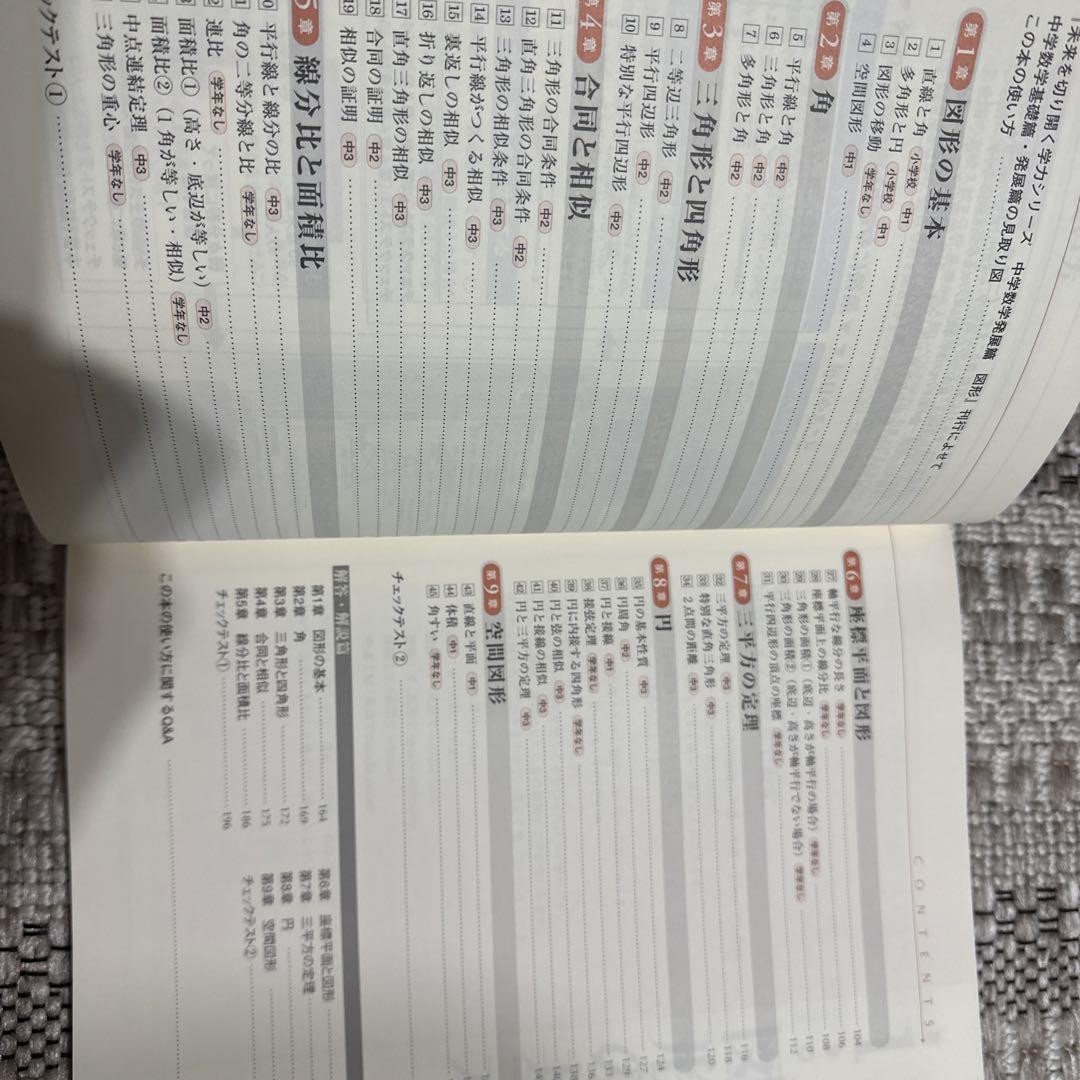 未来を切り開く学力シリーズ 中学数学発展篇 図形」刊行によせて
中学数学基礎篇・発展篇の見取り図
この本の使い方
第1章 図形の基本
1 直線と角 小学校 中1
2 多角形と円 小学校 中1
3 図形の移動 学年なし
4 空間図形 中1
第2章 角
5 平行線と角 中2
6 三角形と角 中2
7 多角形と角 中2
第3章 三角形と四角形
8 二等辺三角形 中2
9 平行四辺形 中2
10 特別な平行四辺形 中2
第4章 合同と相似
11 三角形の合同条件 中2
12 直角三角形の合同条件 中2
13 三角形の相似条件 中3
14 平行線がつくる相似 中3
15 裏返しの相似 中3
16 折り返しの相似 中3
17 直角三角形の相似 中3
18 合同の証明 中2
19 相似の証明 中3
5章 線分比と面積比
平行線と線分の比 中3
角の二等分線と比 学年なし
連比 学年なし
面積比①(高さ・底辺が等しい) 中2
面積比②(1角が等しい・相似) 学年なし
中点連結定理 中3
三角形の重心 学年なし
ックテスト①
CONTENTS
第6章 座標平面と図形
27 軸平行な線分の長さ 学年なし 104
28 座標平面上の線分比 学年なし 106
29 三角形の面積①(底辺・高さが軸平行の場合) 学年なし 108
30 三角形の面積②(底辺・高さが軸平行でない場合) 学年なし 110
31 平行四辺形の頂点の座標 学年なし 112
第7章 三平方の定理
32 三平方の定理 中3 116
33 特別な直角三角形 中3 118
34 2点間の距離 中3 120
第8章 円
35 円の基本性質 中3 124
36 円周角 中2 127
37 円と接線 中1 129
38 接弦定理 学年なし 133
39 円に内接する四角形 学年なし 136
40 円と弦の相似 中3 138
41 円と接線の相似 中3
42 円と三平方の定理 中3
第9章 空間図形
43 直線と平面 中1
44 体積 中1
45 角すい 学年なし
チェックテスト②
解答・解説篇
第1章 図形の基本 164
第2章 角 169
第3章 三角形と四角形 172
第4章 合同と相似 175
第5章 線分比と面積比 186
チェックテスト① 196
第6章 座標平面と図形
第7章 三平方の定理
第8章 円
第9章 空間図形
チェックテスト②
この本の使い方に関するQ&A